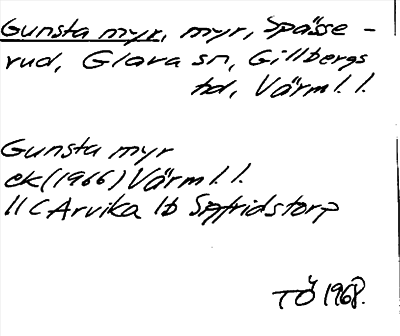 Gunsta myr, myr, Spässe-
rud, Glava sn, Gillbergs
hd, Värml. l.
Gunsta myr
ek (1966) Värml. l.
11C Arvika 1b Sqfridstorp
TÖ 1968.